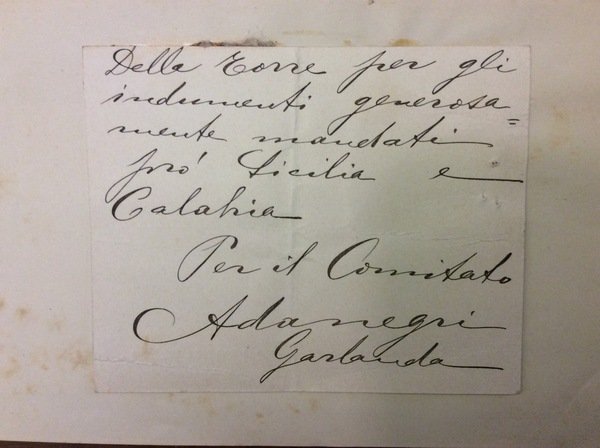 Della Torre per gli
indumenti generosa=
mente mandati
pró Sicilia e
Calabria
Per il Comitato
Ada negri
Garlanda